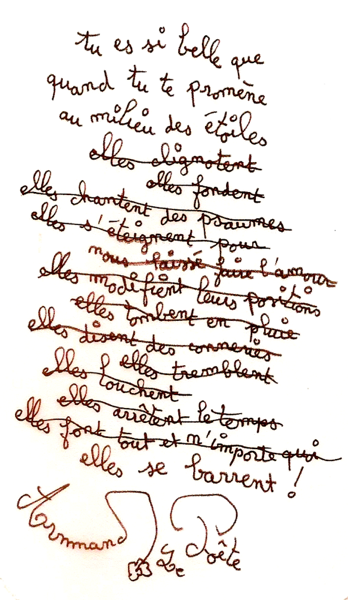 tu es si belle que
quand tu te promène
au milieu des étoiles
elles clignotent
elles fondent
elles chantent des psaumes
elles s'éteignent pour
nous laisser faire l'amour
elles modifient leurs positions
elles tombent en pluie
elles disent des conneries
elles tremblent
elles louchent
elles arrêtent le temps
elles font tout et n'importe quoi
elles se barrent !
Armmand
Le Poête